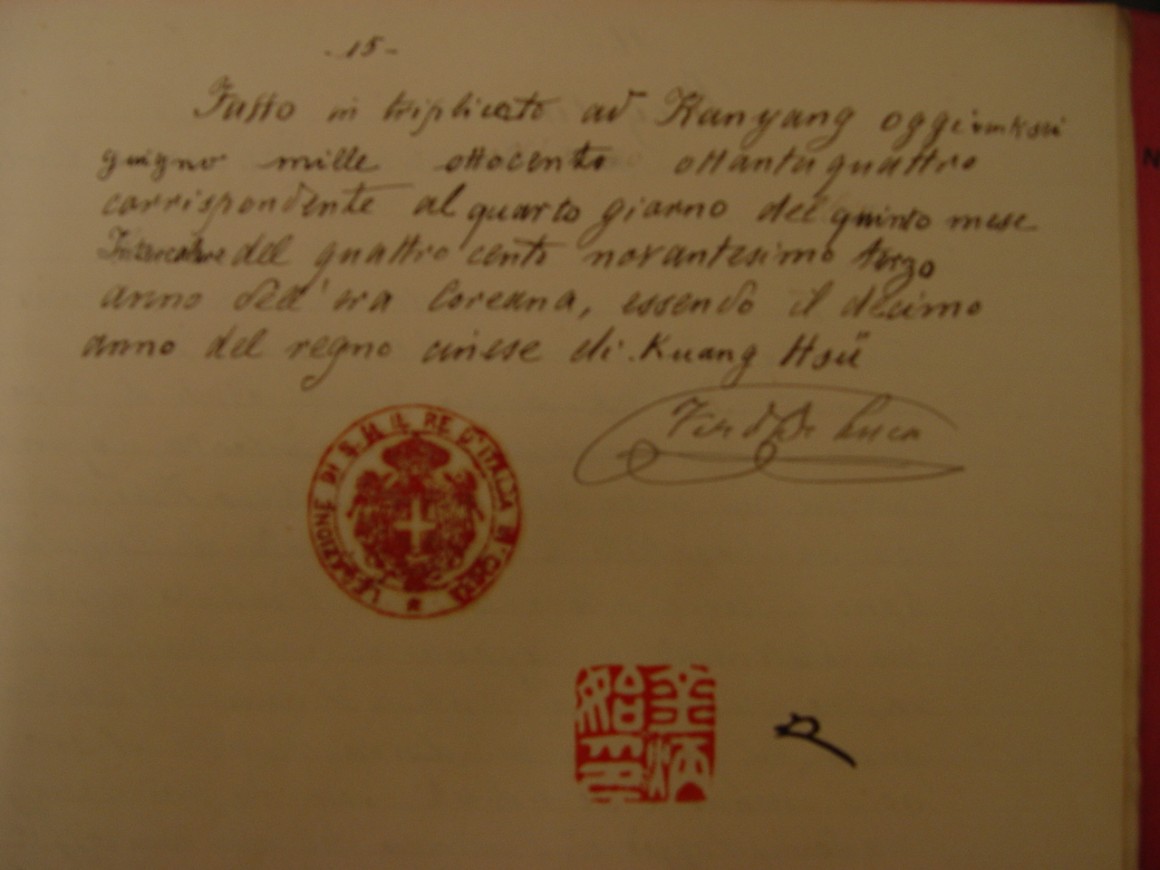 -15-
Fatto in triplicato ad Hanyang oggi ventisei
giugno mille ottocento ottantaquattro
corrispondente al quarto giorno del quinto mese
Intercalare del quattro cento novantesimo terzo
anno dell'era Coreana, essendo il decimo
anno del regno cinese di Kuang Hsü
Ferd De Luca
LEGAZIONE DI S. M. IL RE D'ITALIA IN
金炳
始印